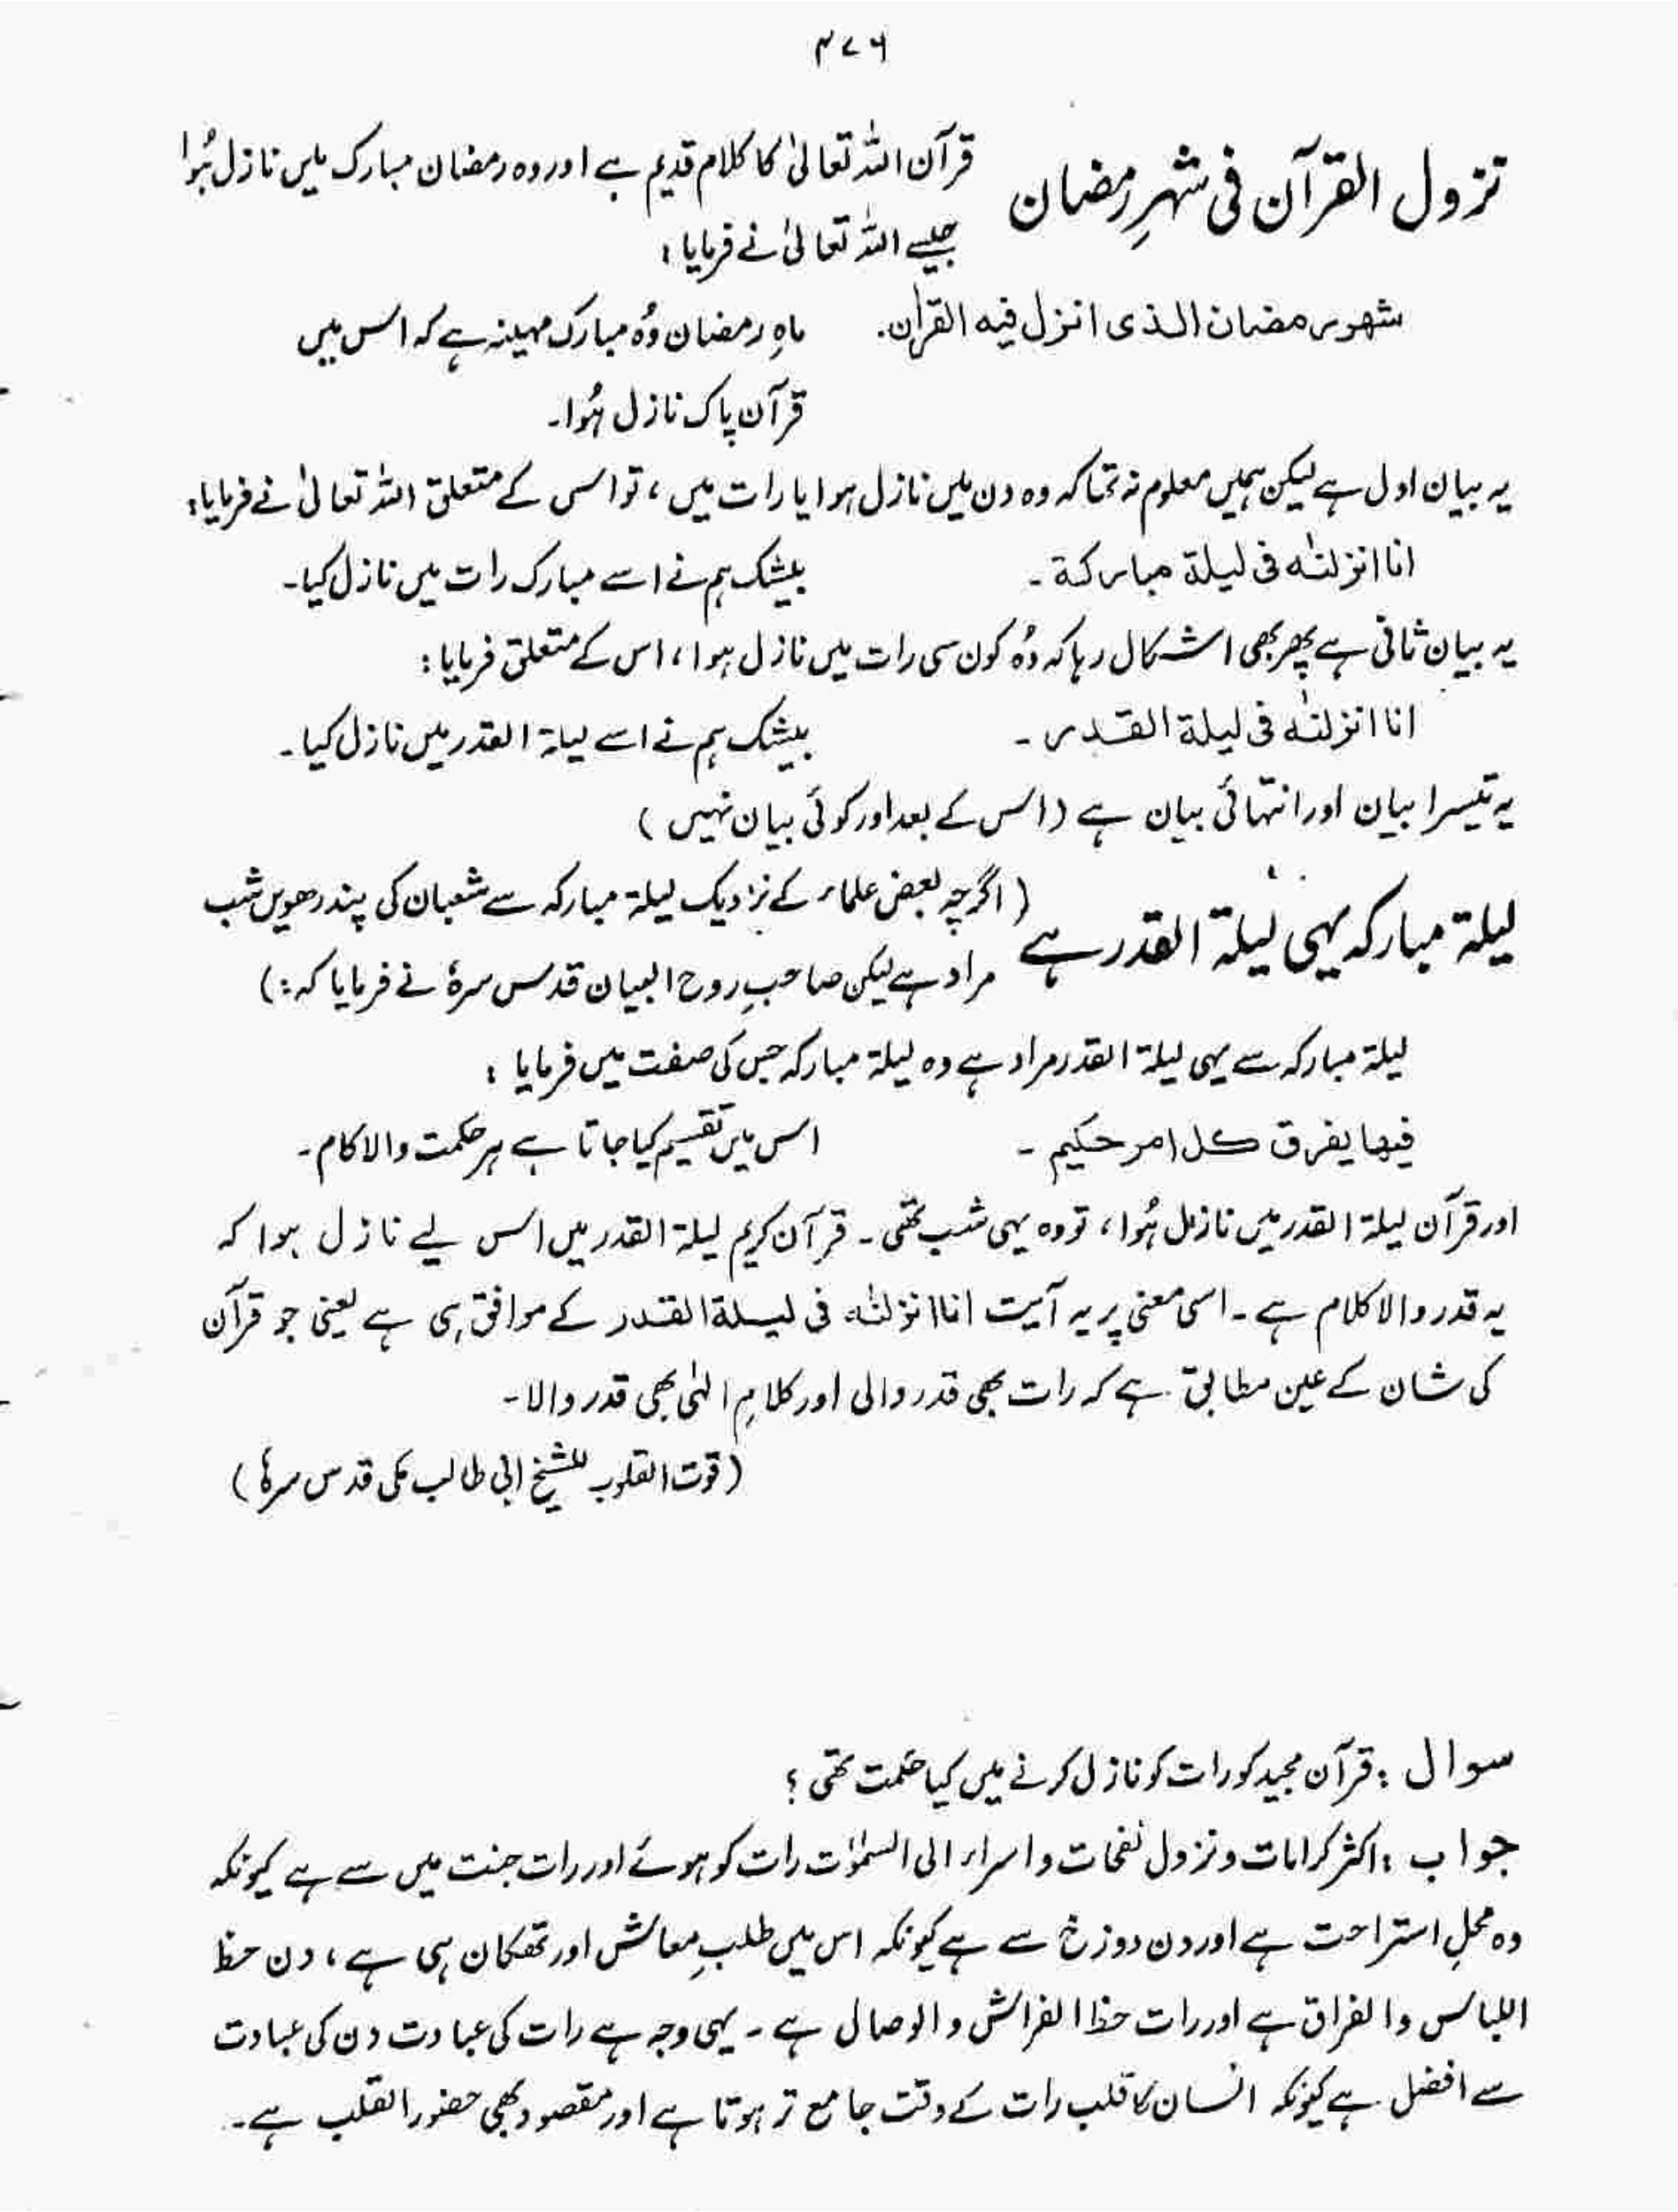 ۳۷۶
نزول القرآن فی شہرِ رمضان
قرآن اللہ تعالیٰ کا کلام قدیم ہے اور وہ رمضان مبارک میں نازل ہُوا
جیسے اللہ تعالیٰ نے فرمایا :
شھر رمضان الذی انزل فیہ القراٰن۔
ماہِ رمضان وُہ مبارک مہینہ ہے کہ اس میں
قرآن پاک نازل ہُوا۔
یہ بیان اول ہے لیکن ہمیں معلوم نہ تھا کہ وہ دن میں نازل ہوا یا رات میں ، تو اس کے متعلق اللہ تعالیٰ نے فرمایا :
انا انزلنٰہ فی لیلة مبارکة ۔
بیشک ہم نے اسے مبارک رات میں نازل کیا۔
یہ بیان ثانی ہے پھر بھی اشکال رہا کہ وُہ کون سی رات میں نازل ہوا ، اس کے متعلق فرمایا :
انا انزلنٰہ فی لیلة القدر ۔
بیشک ہم نے اسے لیلۃ القدر میں نازل کیا ۔
یہ تیسرا بیان اور انتہائی بیان ہے ( اس کے بعد اور کوئی بیان نہیں )
لیلۃ مبارکہ یہی لیلۃ القدر ہے
( اگرچہ بعض علماء کے نزدیک لیلۃ مبارکہ سے شعبان کی پندرھویں شب
مراد ہے لیکن صاحبِ روح البیان قدس سرہٗ نے فرمایا کہ : )
لیلۃ مبارکہ سے یہی لیلۃ القدر مراد ہے وہ لیلۃ مبارکہ جس کی صفت میں فرمایا :
فیھا یفرق کل امر حکیم ۔
اس میں تقسیم کیا جاتا ہے ہر حکمت والا کام ۔
اور قرآن لیلۃ القدر میں نازل ہُوا ، تو وہ یہی شب تھی ۔ قرآن کریم لیلۃ القدر میں اس لیے نازل ہوا کہ
یہ قدر والا کلام ہے ۔ اسی معنی پر یہ آیت انا انزلنٰہ فی لیلة القدر کے موافق ہی ہے یعنی جو قرآن
کی شان کے عین مطابق ہے کہ رات بھی قدر والی اور کلامِ الٰہی بھی قدر والا ۔
( قوت القلوب للشیخ ابی طالب مکی قدس سرہٗ )
سوال : قرآن مجید کو رات کو نازل کرنے میں کیا حکمت تھی ؟
جواب : اکثر کرامات و نزول نفحات و اسراء الی السمٰوٰت رات کو ہوئے اور رات جنت میں سے ہے کیونکہ
وہ محلِ استراحت ہے اور دن دوزخ سے ہے کیونکہ اس میں طلبِ معاش اور تھکان ہی ہے ، دن حظ
اللباس والفراق ہے اور رات حظ الفراش والوصال ہے ۔ یہی وجہ ہے رات کی عبادت دن کی عبادت
سے افضل ہے کیونکہ انسان کا قلب رات کے وقت جامع تر ہوتا ہے اور مقصود بھی حضور القلب ہے ۔